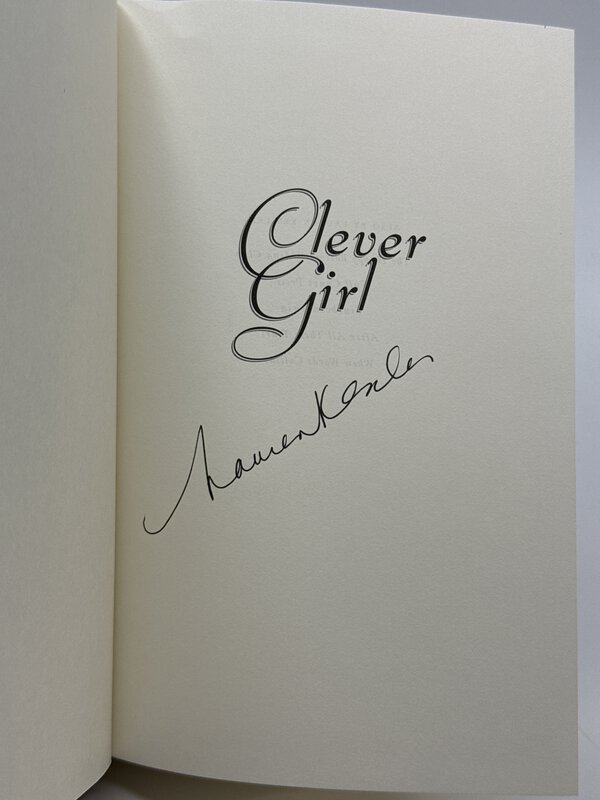 Clever
Girl
Lauren Kessler